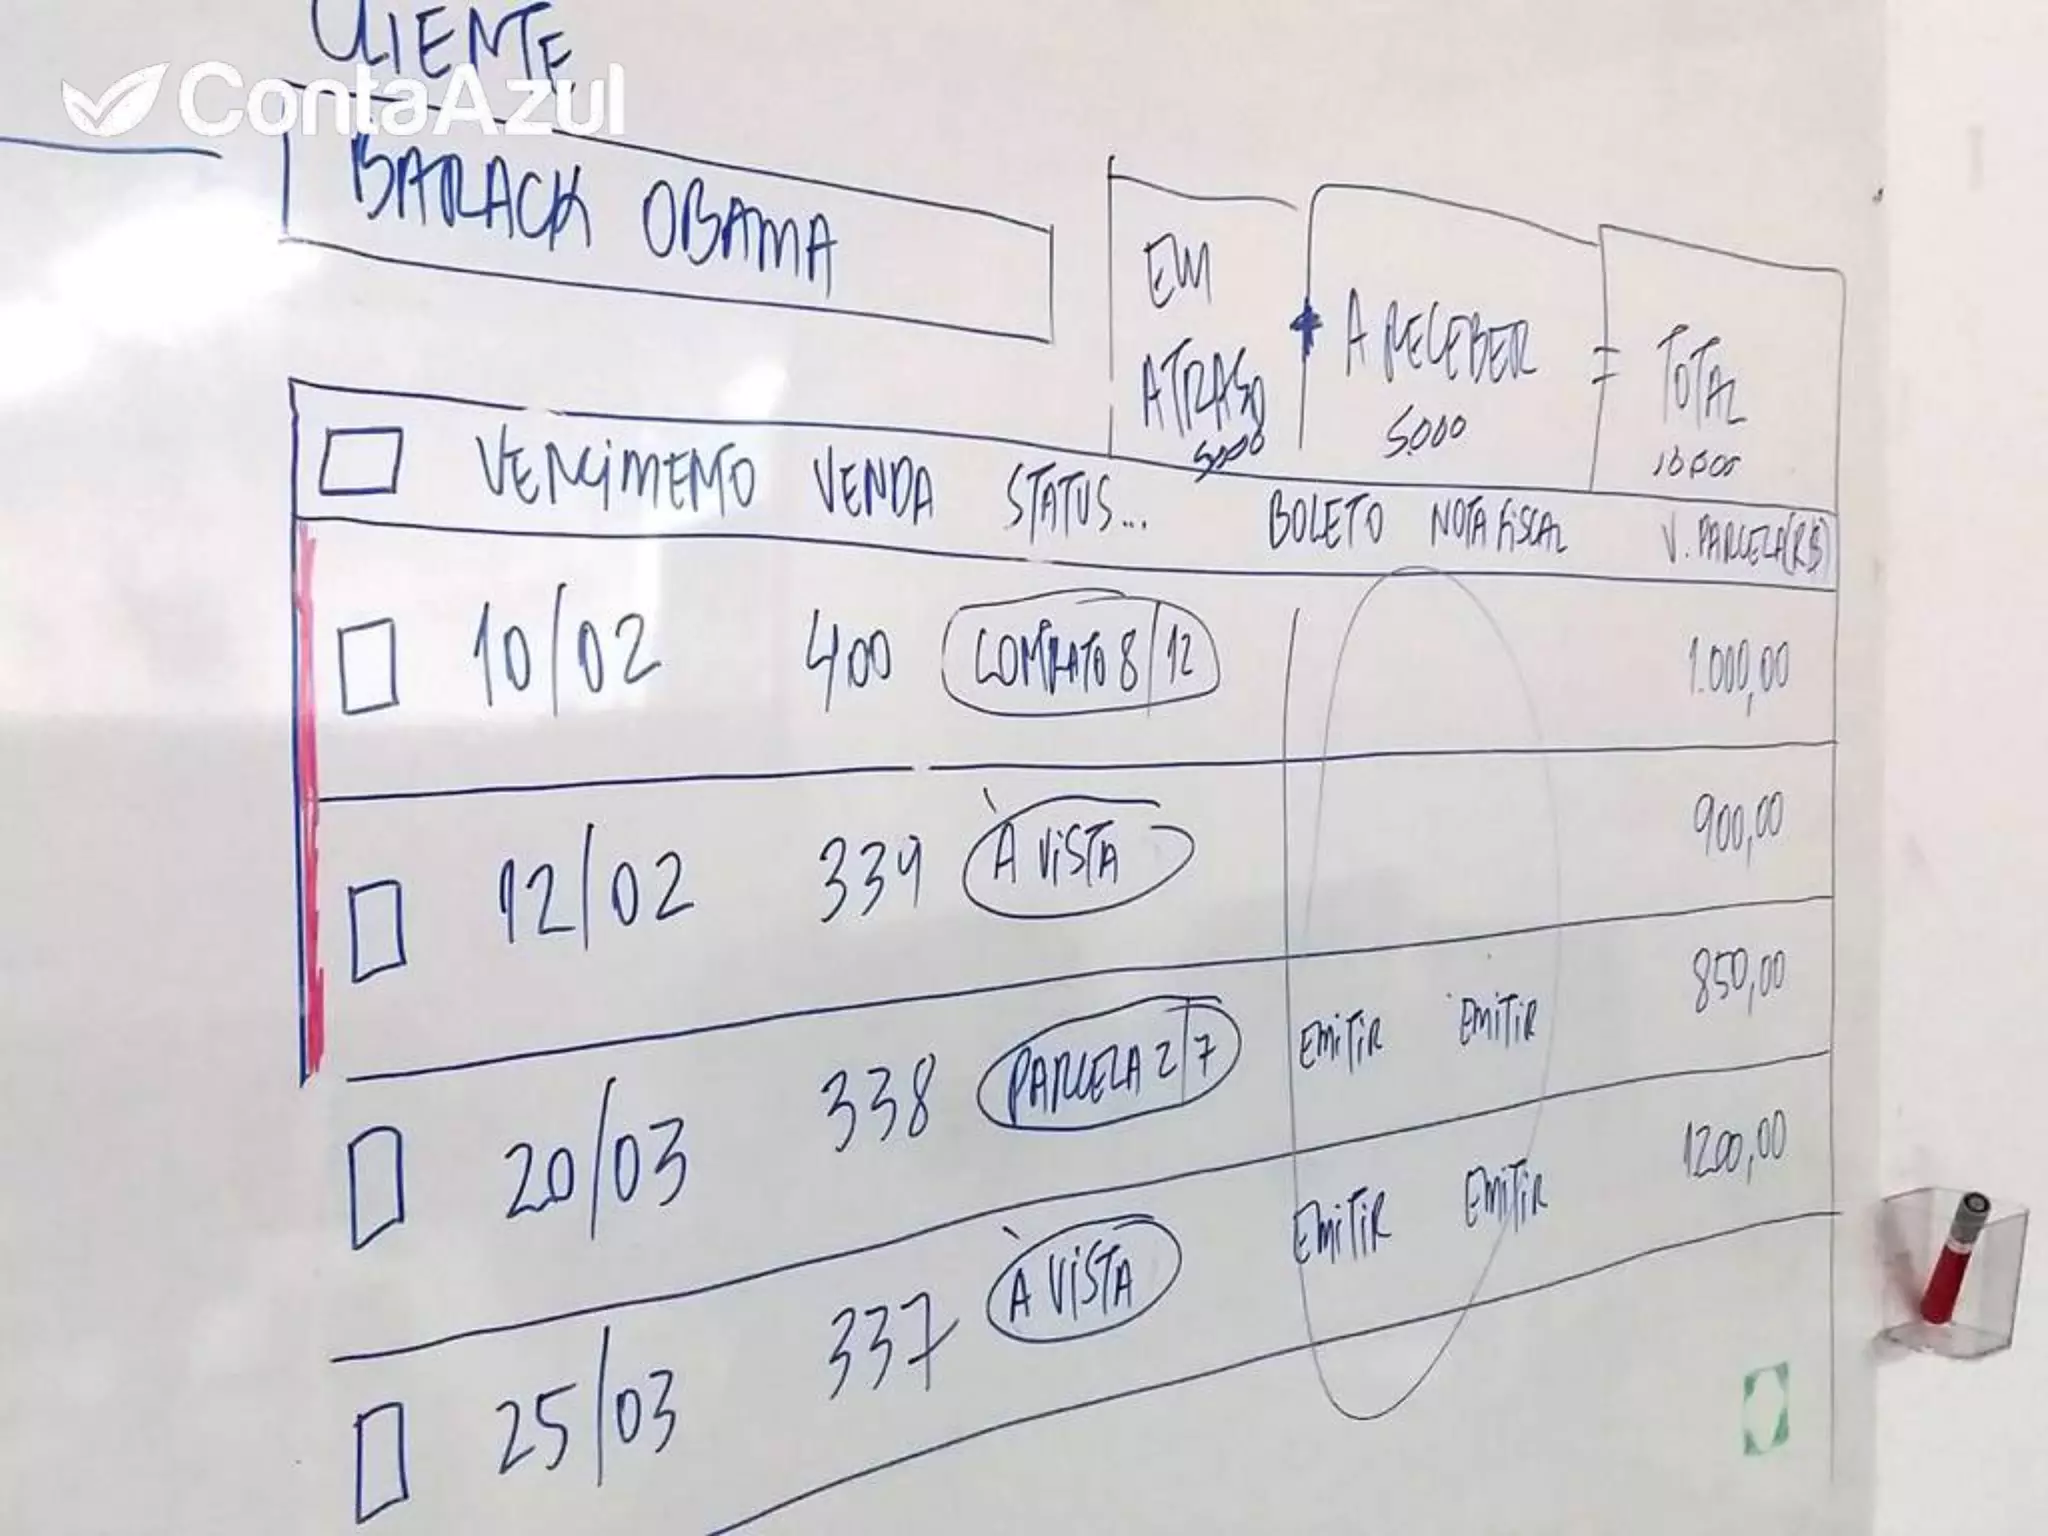 CLIENTE
ContaAzul
BARACK OBAMA
EM ATRASO 5000 + A RECEBER 5000 = TOTAL 10000
VENCIMENTO VENDA STATUS... BOLETO NOTA FISCAL V. PARCELA(R$)
10/02 400 CONTRATO 8/12 1.000,00
12/02 339 À VISTA 900,00
20/03 338 PARCELA 2/7 EMITIR EMITIR 850,00
25/03 337 À VISTA EMITIR EMITIR 1200,00